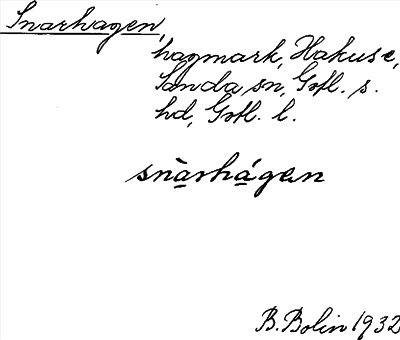 Snarhagen,
hagmark, Hakuse,
Sanda sn, Gotl. s.
hd, Gotl. l.
snàrhágen
B. Bolin 1932